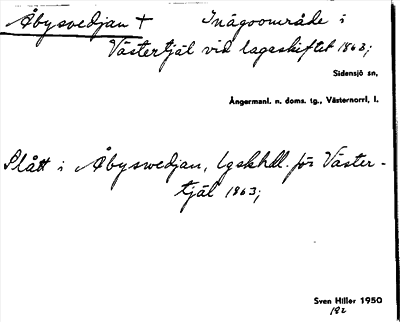 Åbysvedjan + Inägoområde i
Västertjäl vid lagaskiftet 1863;
Sidensjö sn,
Ångermanl. n. doms. tg., Västernorrl. l.
Slått i Åbyswedjan, lgskhdl. för Väster-
tjäl 1863;
Sven Hiller 1950
182